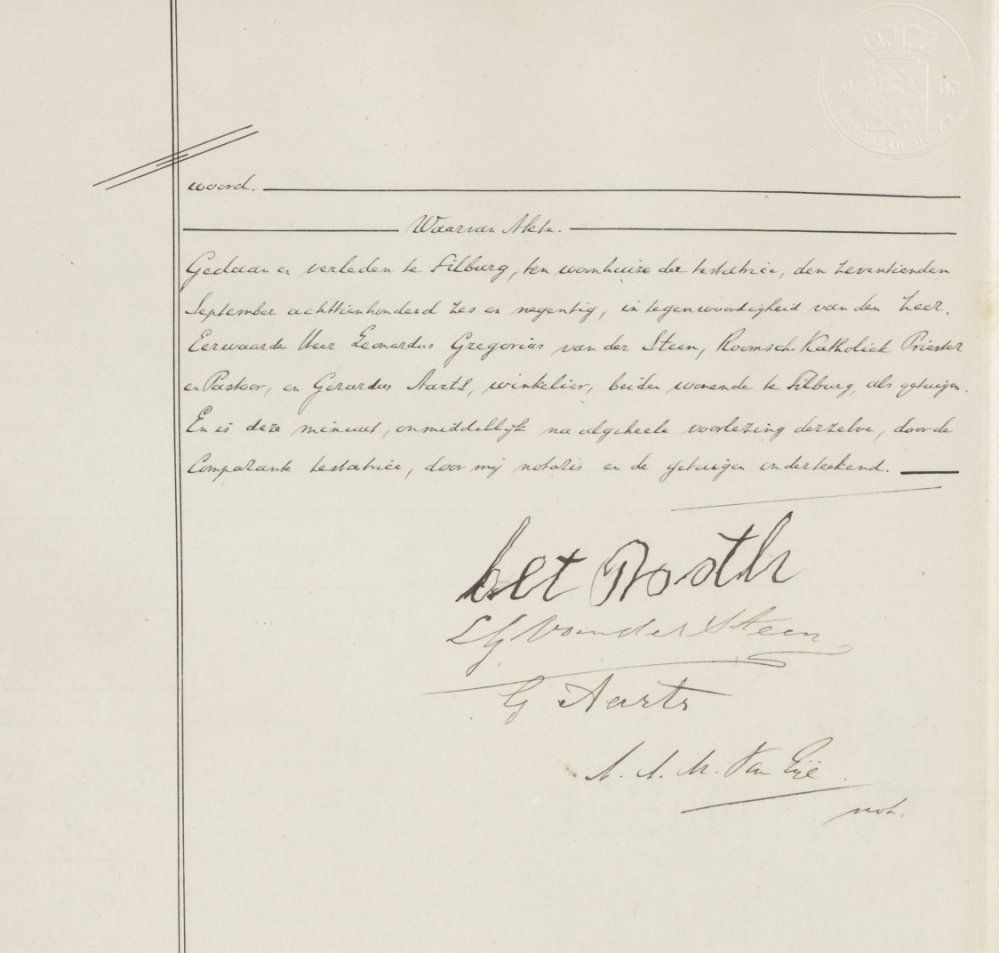 woord.
Waarvan Akte.
Gedaan en verleden te Tilburg, ten woonhuize der testatrice, den zeventienden
September achttienhonderd zes en negentig, in tegenwoordigheid van den Zeer.
Eerwaarde Heer Leonardus Gregorius van der Steen, Roomsch-Katholiek Priester
en Pastoor, en Gerardus Aarts, winkelier, beiden wonende te Tilburg, als getuigen.
En is deze minuut, onmiddellijk na algeheele voorlezing derzelve, door de
Comparante testatrice, door mij notaris en de getuigen onderteekend.
LG Van der Steen
G Aarts
A. A. M. Van
not.